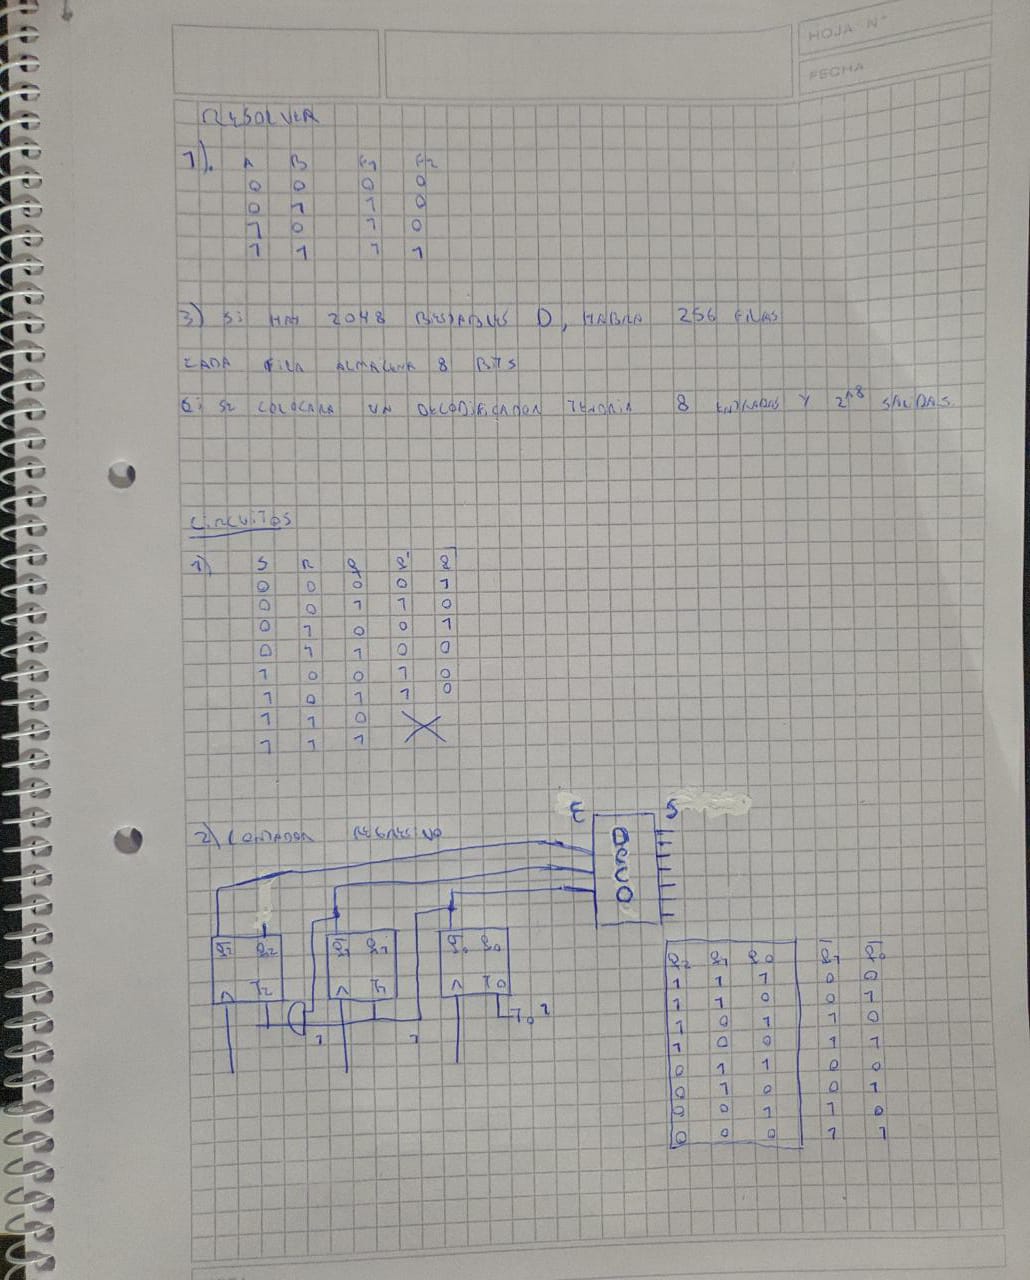 HOJA N°
FECHA
RESOLVER
1). A B F1 F2
0 0 0 0
0 1 1 0
1 0 1 0
1 1 1 1
3) Si HAY 2048 BIESTABLES D, HABRA 256 FILAS
CADA FILA ALMACENA 8 BITS
6i SE COLOCARA UN DECODIFICADOR TENDRIA 8 ENTRADAS Y 2^8 SALIDAS
CIRCUITOS
1) S R Q Q' Q̅
0 0 0 0 1
0 0 1 1 0
0 1 0 0 1
0 1 1 0 0
1 0 0 1 0
1 0 1 1 0
1 1 0
1 1 1
E S
2) CONTADOR REGRESIVO
DECO
Q̅2 Q2 Q̅1 Q1 Q̅0 Q0
T2 T1 T0
1 1 T0 1
Q2 Q1 Q0 Q̅1 Q̅0
1 1 1 0 0
1 1 0 0 1
1 0 1 1 0
1 0 0 1 1
0 1 1 0 0
0 1 0 0 1
0 0 1 1 0
0 0 0 1 1